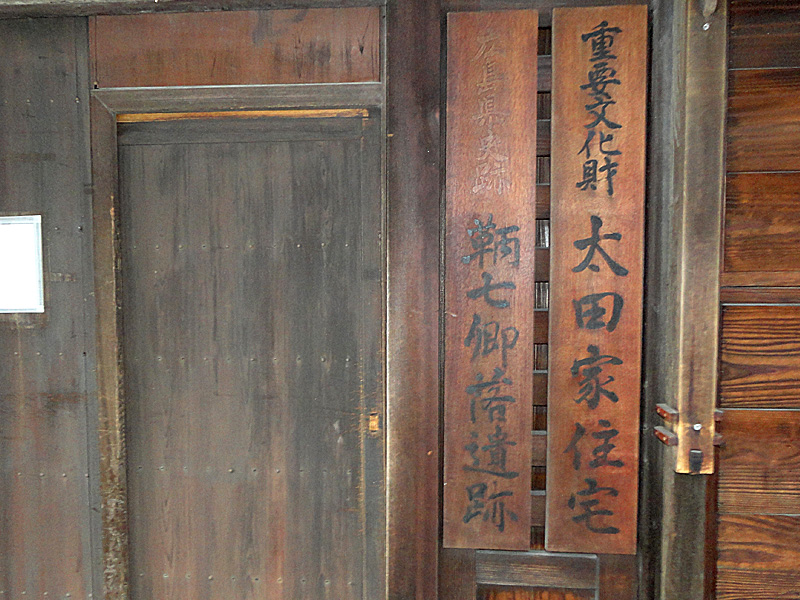 重要文化財 太田家住宅
広島県史跡 鞆七卿落遺跡